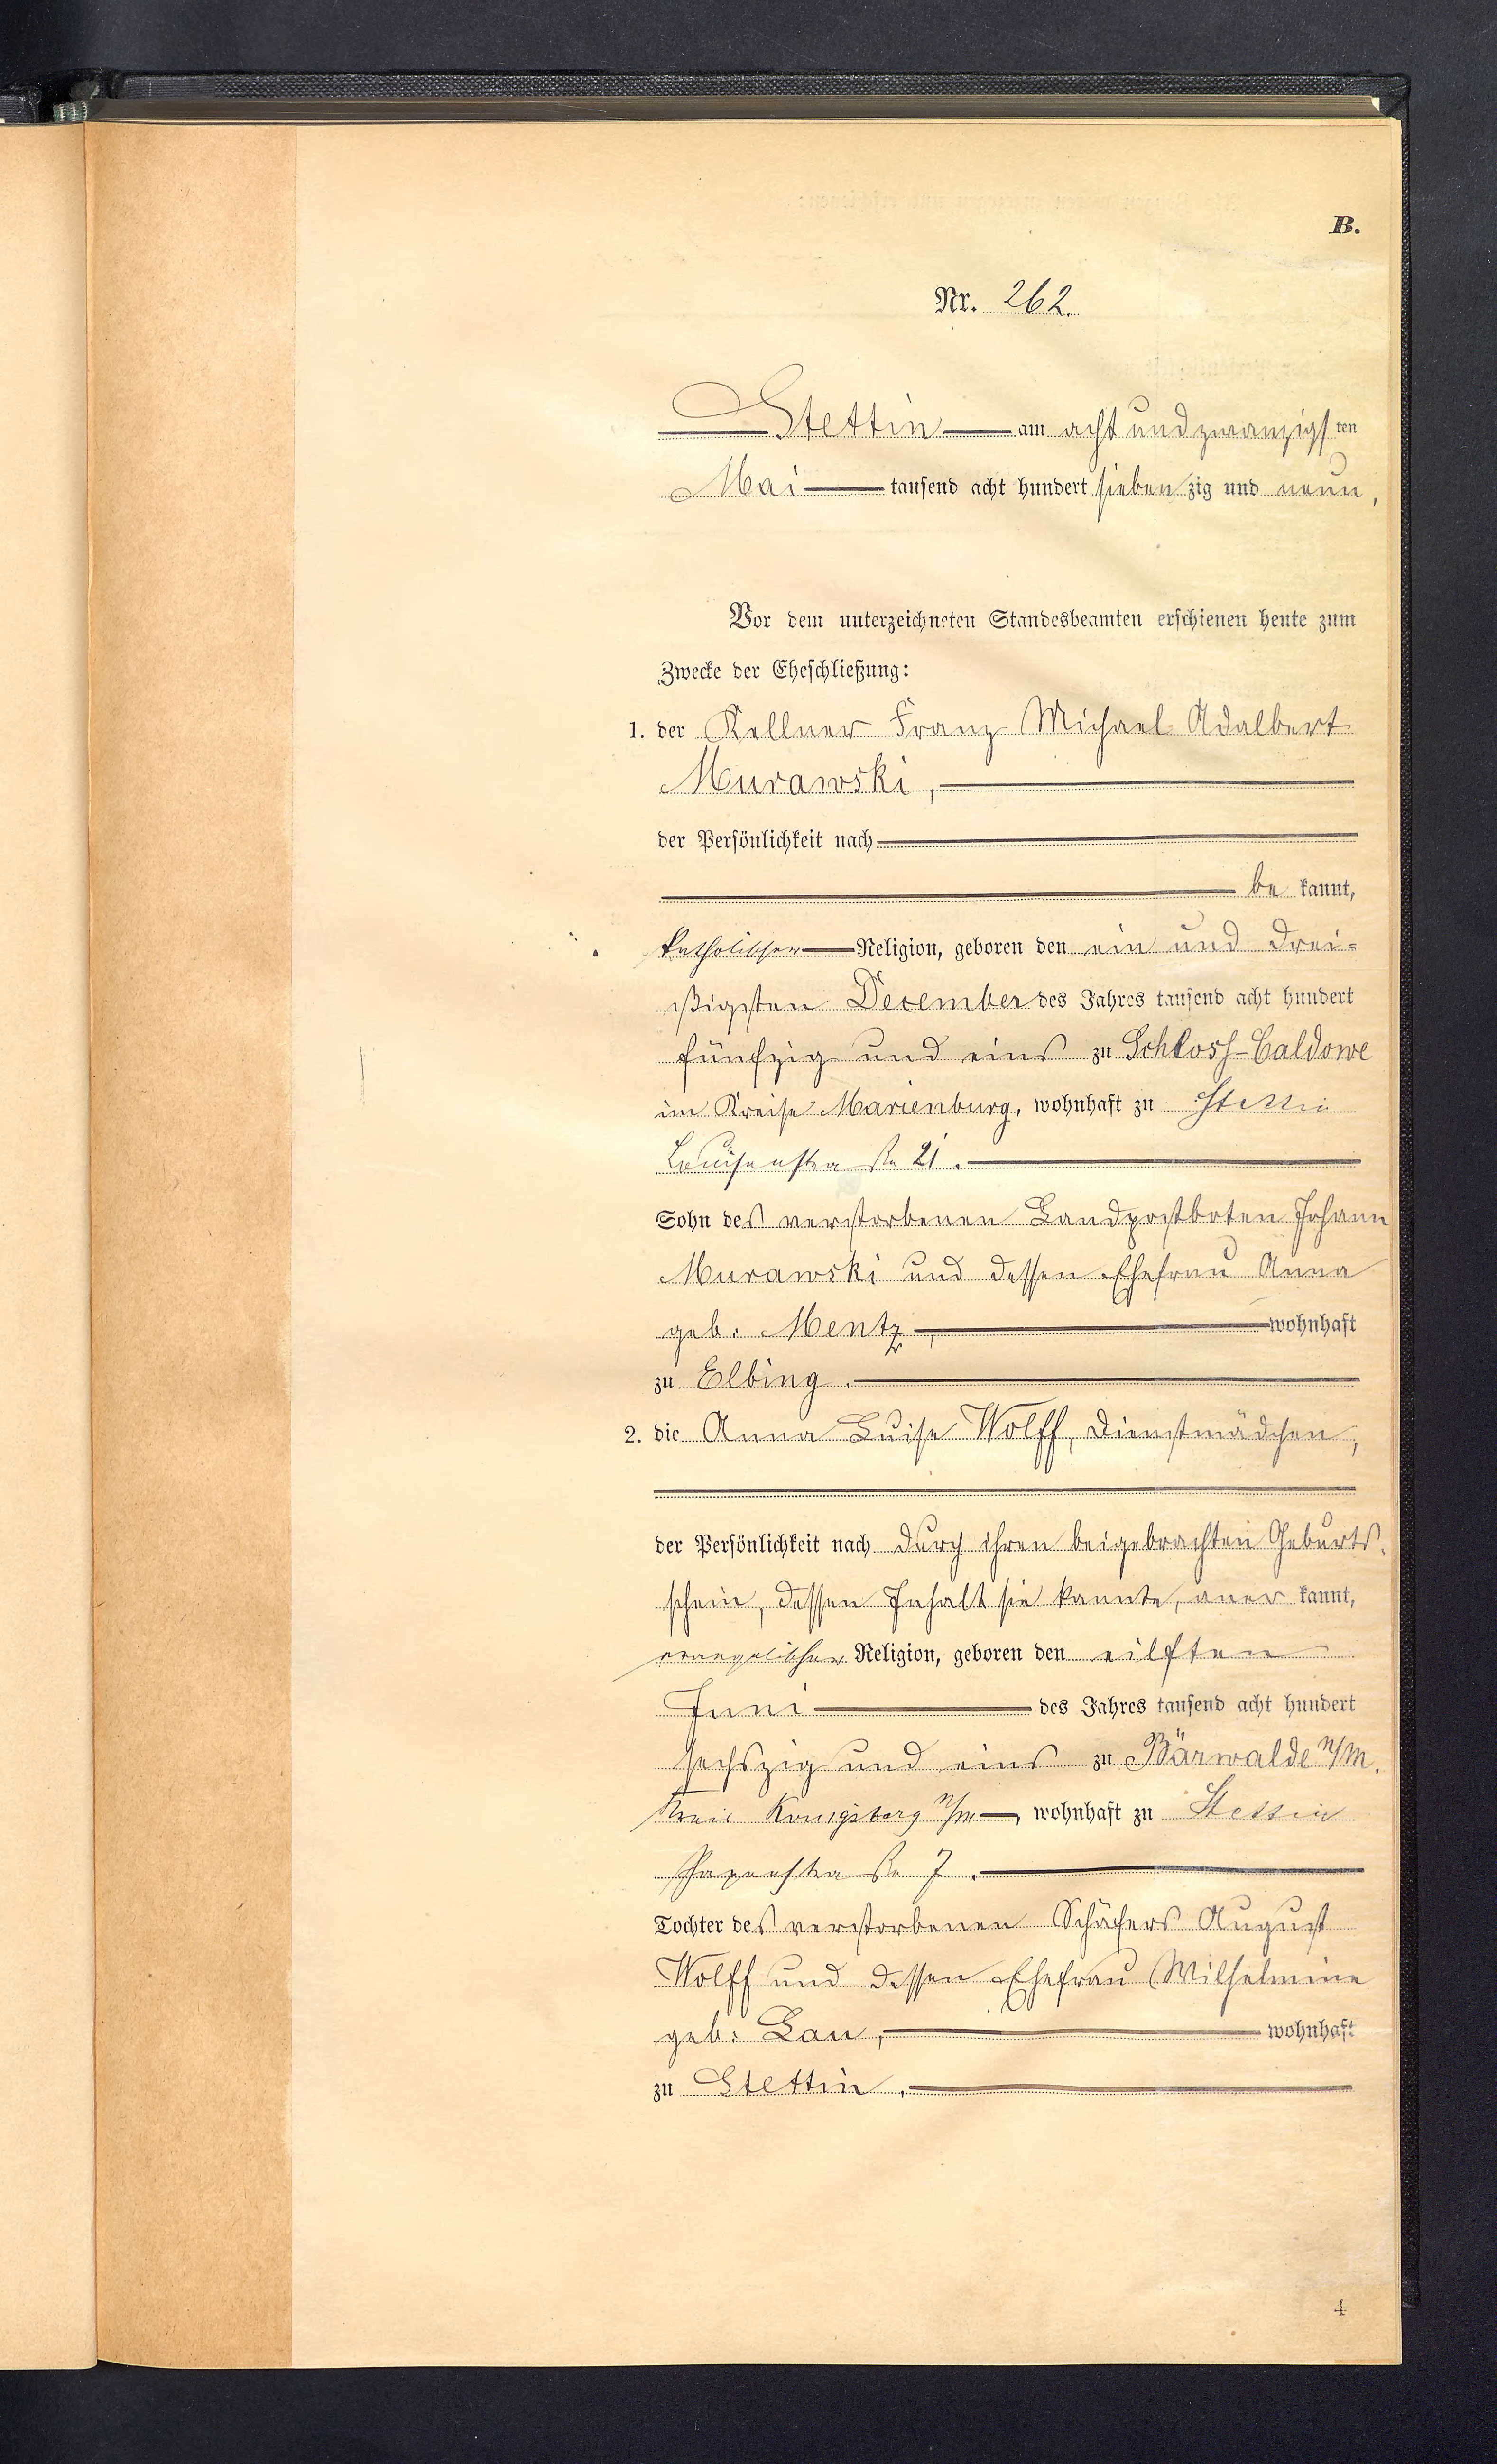 B.
Nr. 262.
Stettin am acht und zwanzigsten
Mai tausend acht hundert siebenzig und neun,
Vor dem unterzeichneten Standesbeamten erschienen heute zum
Zwecke der Eheschließung:
1. der Kellner Franz Michael Adalbert
Murawski,
der Persönlichkeit nach
bekannt,
katholischer Religion, geboren den ein und drei-
ßigsten December des Jahres tausend acht hundert
fünfzig und eins zu Schloss-Caldowe
im Kreise Marienburg, wohnhaft zu Stettin
Louisenstraße 21.
Sohn des verstorbenen Landpostboten Johann
Murawski und dessen Ehefrau Anna
geb. Mentz, wohnhaft
zu Elbing.
2. die Anna Luise Wolff, Dienstmädchen,
der Persönlichkeit nach durch ihren beigebrachten Geburts-
schein, dessen Inhalt sie kannte, anerkannt,
evangelischer Religion, geboren den eilften
Juni des Jahres tausend acht hundert
sechszig und eins zu Bärwalde N/M.
Kreis Königsberg N/M, wohnhaft zu Stettin
Papenstraße 7.
Tochter des verstorbenen Schäfers August
Wolff und dessen Ehefrau Wilhelmine
geb. Lau, wohnhaft
zu Stettin.
4